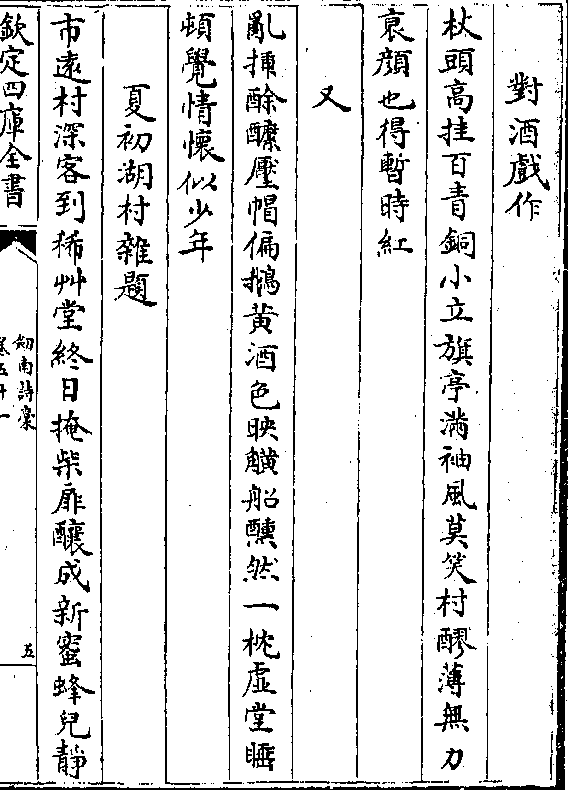 對酒戲作
杖頭高挂百青銅小立旗亭滿袖風莫笑村醪薄無力
衰顔也得暫時紅
又
亂插酴醿壓帽偏鵝黃酒色映觥船醺然一枕虛堂睡
頓覺情懷似少年
夏初湖村雜題
市遠村深客到稀艸堂終日掩柴扉釀成新蜜蜂兒靜
欽定四庫全書
劒南詩稾
卷五十一
五